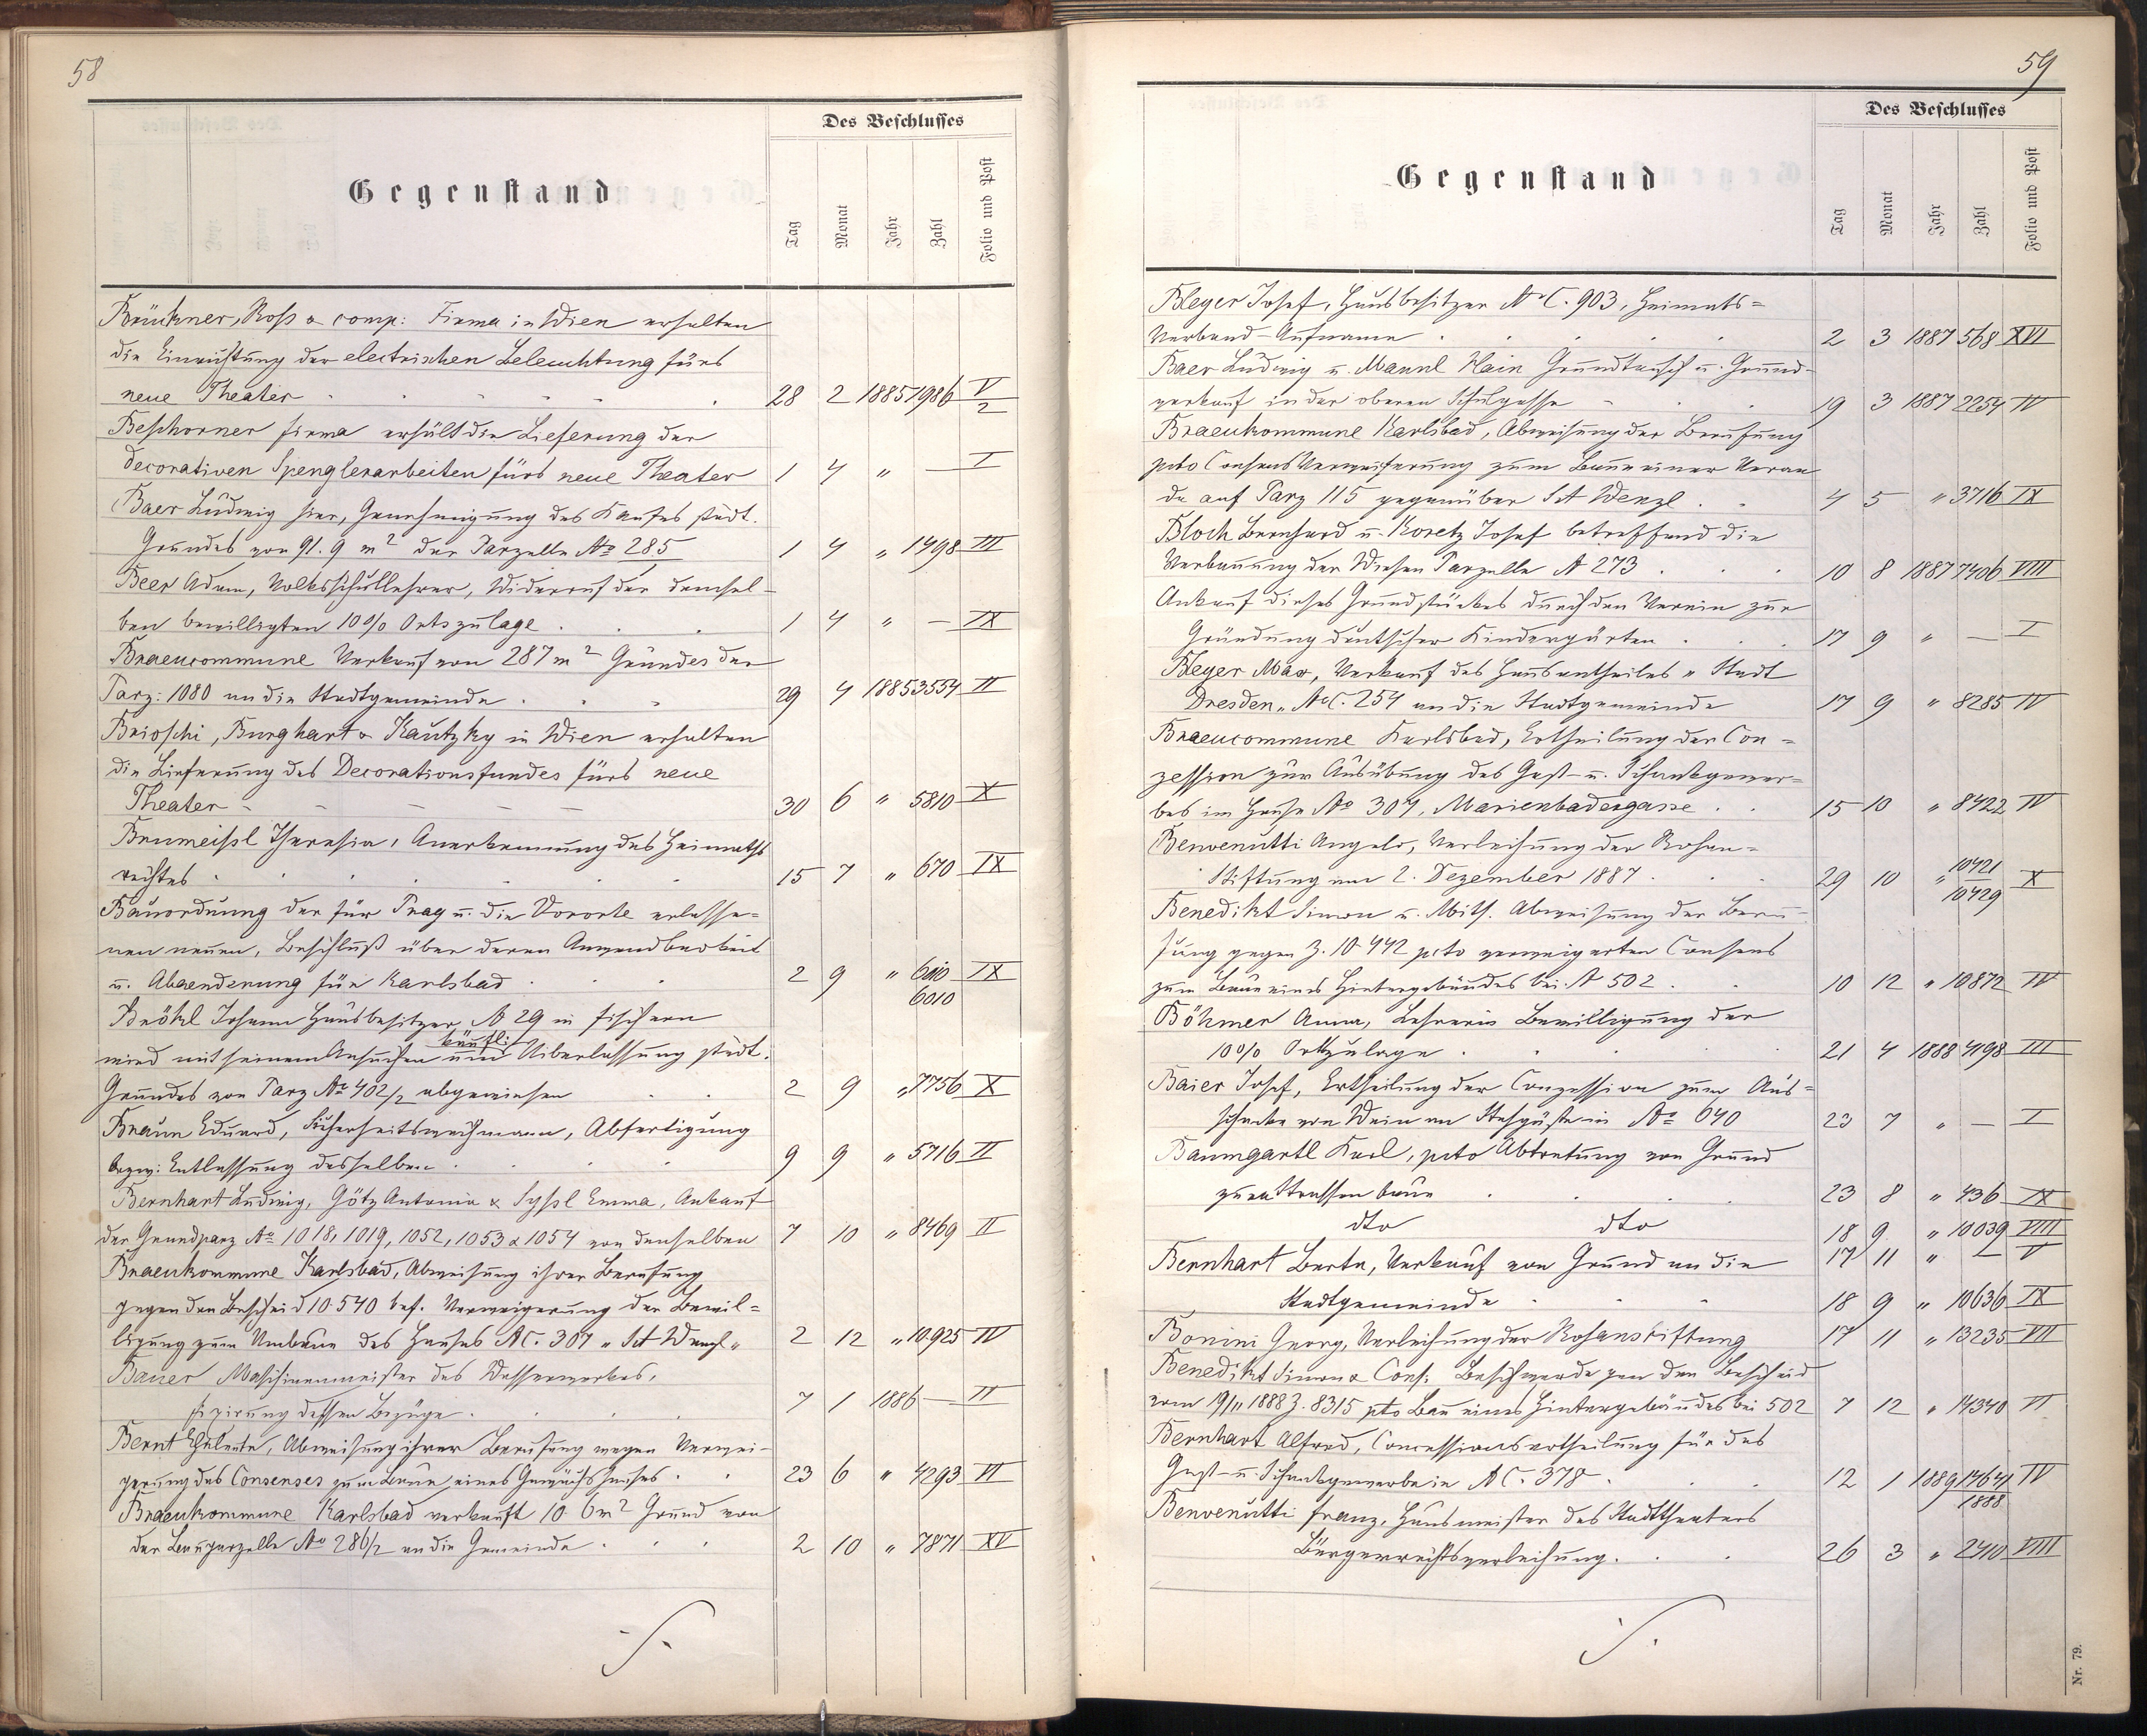 58
Des Beschlusses
Gegenstand
Tag Monat Jahr Zahl Folio und Post
Brückner, Ross & comp: Firma in Wien erhalten
die Einrichtung der electrischen Beleuchtung fürs
neue Theater 28 2 1885 1986 V/2
Beschorner Firma erhält die Lieferung der
decorativen Spenglerarbeiten fürs neue Theater 1 4 " — I
Baer Ludwig hier, Genehmigung des Kaufes städt.
Grundes von 91.9 m² der Parzelle No 285 1 4 " 1498 III
Beer Adam, Volksschullehrer, Widerruf der demsel-
ben bewilligten 10% Ortszulage 1 4 " — IX
Braeucommune Verkauf von 287 m² Grundes der
Parz: 1080 an die Stadtgemeinde 29 4 1885 3554 II
Brioschi, Burghart & Kautzky in Wien erhalten
die Lieferung des Decorationsfundes fürs neue
Theater 30 6 " 5810 X
Brumeissl Theresia, Anerkennung des Heimaths
rechtes 15 7 " 670 IX
Bauordnung der für Prag u. die Vororte erlasse-
nen neuen, Beschluß über deren Anwendbarkeit
u. Abaenderung für Karlsbad 2 9 " 6010 IX
Bröckl Johann Hausbesitzer N 29 in Fischern
wird mit seinem Ansuchen um käufl: Uiberlassung städt.
Grundes von Parz No 402/2 abgewiesen 2 9 " 7756 X
Braun Eduard, Sicherheitswachmann, Abfertigung
bezw: Entlassung desselben 9 9 " 5716 II
Bernhart Ludwig, Götz Antonia & Emma, Ankauf
der Grundparz No 1018, 1019, 1052, 1053 & 1054 von denselben 7 10 " 8469 II
Braeukommune Karlsbad, Abweisung ihrer Berufung
gegen den Bescheid 10.540 bet. Verweigerung der Bewil-
ligung zum Umbaue des Hauses NC. 307 "Sct Wenzl" 2 12 " 10.925 IV
Bauer Maschinenmeister des Wasserwerkes,
fixirung dessen Bezüge 7 1 1886 — III
Bernt, Abweisung ihrer Berufung wegen Verwei-
gerung des Consenses zum Baue eines Gewächshauses 23 6 " 4293 VI
Braeukommune Karlsbad verkauft 10.6 m² Grund von
der Bauparzelle No 286/2 an die Gemeinde 2 10 " 7871 XV
59
Des Beschlusses
Gegenstand
Tag Monat Jahr Zahl Folio und Post
Bleyer Josef, Hausbesitzer NC. 903, Heimats-
Verband-Aufname 2 3 1887 568 XVI
Baer Ludwig u. Mannl Hain Grundtausch u. Grund-
verkauf in der oberen Schulgasse 19 3 1887 2254 IV
Braeukommune Karlsbad, Abweisung der Berufung
pcto Consens Verweigerung zum Baue einer Veran
da auf Parz 115 gegenüber Sct Wenzl 4 5 " 3716 IX
Bloch Bernhard u. Koretz Josef betreffend die
Verbauung der Wiesen Parzelle N 273 10 8 1887 7406 VIII
Ankauf dieses Grundstückes durch den Verein zur
Gründung deutscher Kindergärten 17 9 " — I
Bleyer Max, Verkauf des Hausantheiles "Stadt
Dresden" NoC. 254 an die Stadtgemeinde 17 9 " 8285 IV
Braeucommune Karlsbad, Ertheilung der Con-
zession zur Ausübung des Gast- u. Schankgewer-
bes im Hause No 307, Marienbadergasse 15 10 " 8422 IV
Benvenutti Angelo, Verleihung der Rohan-
Stiftung am 2. Dezember 1887 29 10 " 10421 10429 X
Benedikt Simon u. Mits. Abweisung der Beru-
fung gegen Z. 10.442 pcto verweigerten Consens
zum Baue eines Hintergebäudes bei N 502 10 12 " 10872 IV
Böhmer Anna, Lehrerin Bewilligung der
10% Ortzulage 21 4 1888 4198 III
Baier Josef, Ertheilung der Conzession zum Aus-
schanke von Wein an Stehgäste in No 640 23 7 " — I
Baumgartl Karl, pcto Abtretung von Grund
zum Strassenbaue 23 8 " 436 IX
dto dto 18 9 " 10039 VIII
17 11 " — V
Bernhart Berta, Verkauf von Grund an die
Stadtgemeinde 18 9 " 10636 IX
Bonini Georg, Verleihung der Rohanstiftung 17 11 " 13235 VII
Benedikt Simon & Cons: Beschwerde gen den Bescheid
vom 19/11 1888 Z. 8315 pto Bau eines Hintergebäudes bei 502 7 12 " 14340 VI
Bernhart Alfred, Concessionsertheilung für das
Gast- u. Schankgewerbe in NC. 378 12 1 1889 14641/1888 IV
Benvenutti Franz, Hausmeister des Stadttheaters
Bürgerrechtsverleihung. 26 3 " 2410 VIII
Nr. 79.